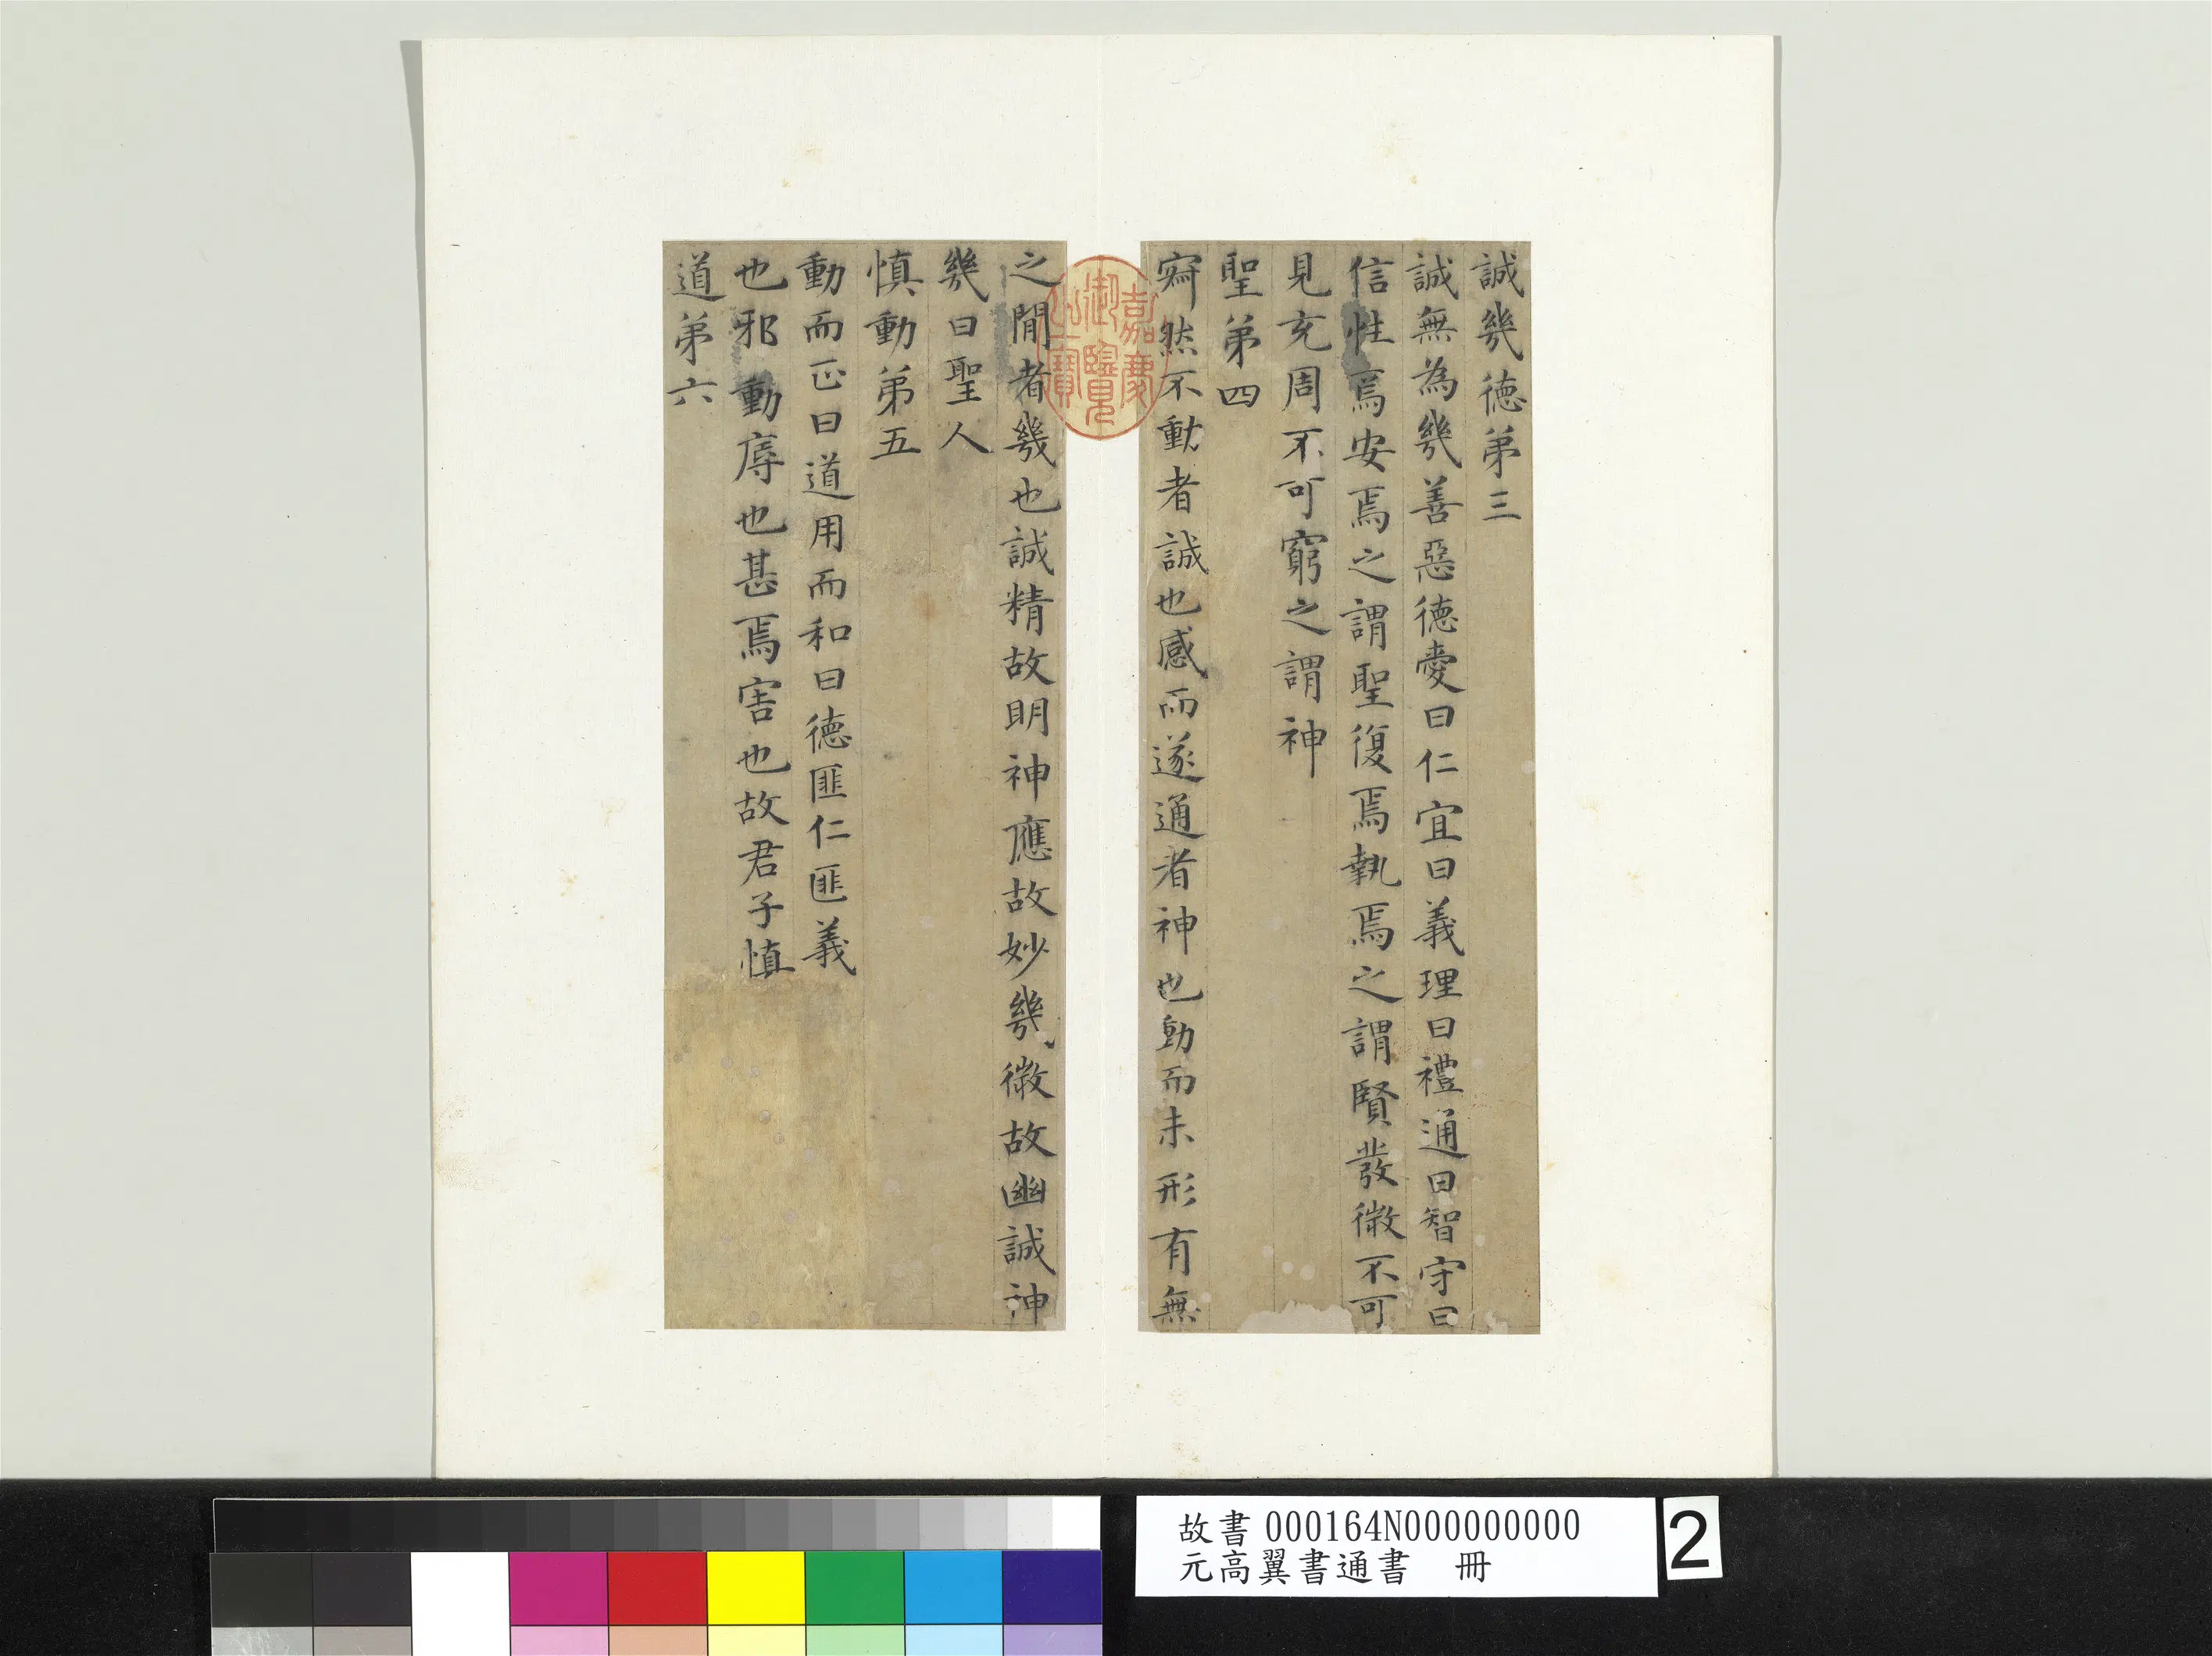 誠幾德弟三
誠無為幾善惡德愛曰仁宜曰義理曰禮通曰智守曰
信性焉安焉之謂聖復焉執焉之謂賢發微不可
見充周不可窮之謂神
聖弟四
寂然不動者誠也感而遂通者神也動而未形有無
之間者幾也誠精故明神應故妙幾微故幽誠神
幾曰聖人
慎動弟五
動而正曰道用而和曰德匪仁匪義
也邪動辱也甚焉害也故君子慎
道弟六
嘉慶
御覽
之寶
故書000164N000000000
元高翼書通書 冊
2